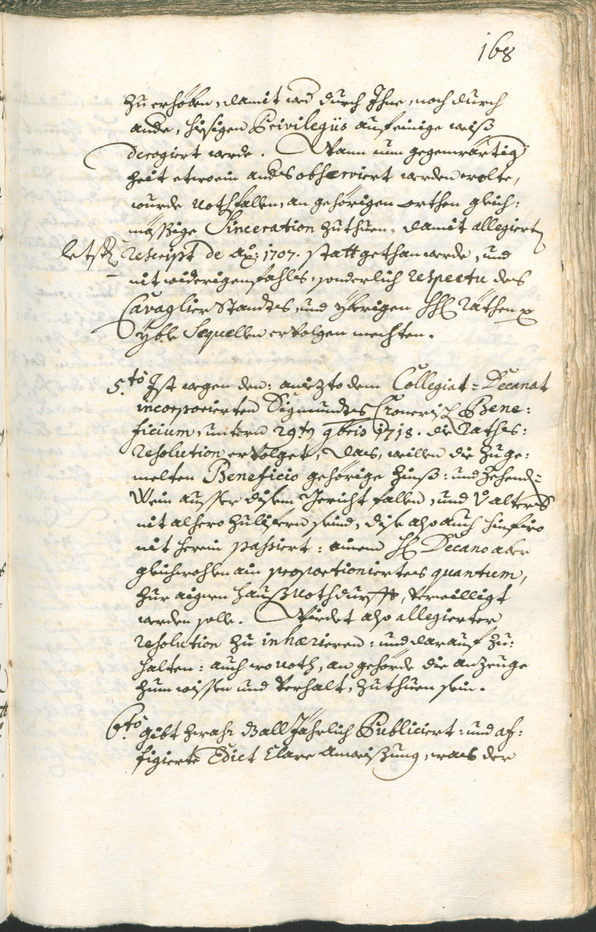 168
zu erhöben, damit wed durch Ihne, noch durch
ande, hiesigen Privilegiis auf einige weiß
derogiert werde. Wann nun gegenwärtig
heit etwein anders observiert werden wolte,
wurde nothfallen, an gehörigen orthen gleich:
mäßige Sinceration zuthuen, damit allegiert
letst rescript de ao: 1707. statt gethan werde, und
nit widerigenfahls, sonderlich respectu des
Cavaglier Standts, und ybrigen HH Räthen
yble Sequellen erfolgen mechten.
5.to Ist wegen den: aniezto dem Collegiat-Decanat
incorporierten Sigmundts Bene:
ficium, unterm 29.t 9bris 1718. die Rathes:
resolution erfolget, das, weillen die zu ge:
melten Beneficio gehörige Zinß: und Zehend:
Wein ausser disem Gericht fallen, und V alters
nit alhero zulifern seind, dise also auch hinfiro
nit herein passiert: ainem H Decano aber
gleichwohlen ain proportioniertes quantum,
zur aignen Hauß Nothdurfft, verwilligt
werden solle. Würdet also allegierter
resolution zu inhærieren: und darauf zu:
halten: auch wo noth, an gehörde die anzeuge
zum wissen und Verhalt, zuthuen sein.
6.to Gibt Jährlich Publiciert: und af:
figierte Edict Clare Anweißung, was der